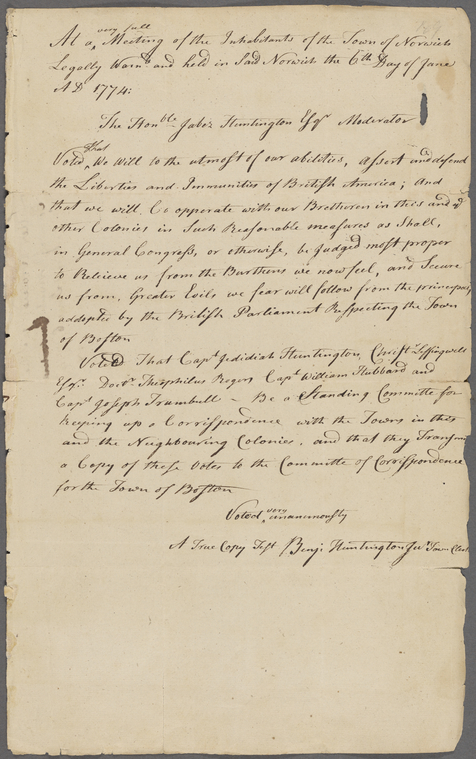 At a very full Meeting of the Inhabitants of the Town of Norwich
Legally Warnd and held in Said Norwich the 6th Day of June
AD 1774:
The Honble Jabez Huntington Esqr Moderator
Voted, that We will to the utmost of our abilities, assert and defend
the Liberties and Immunities of British America; And
that we will Co opperate with our Bretheren in this and ye
other Colonies in Such Reasonable measures as Shall,
in General Congress, or otherwise, be Judged most proper
to Releieve us from the Burthens we now feel, and Secure
us from Greater Evils we fear will follow from the principals
addopted by the British Parliament Respecting the Town
of Boston
Voted That Capt Jedidiah Huntington, Christr Leffingwell
Esqrs. Doctr. Theophilus Rogers Capt William Hubbard and
Capt Joseph Trumbull – Be a Standing Committe for
keeping up a Corrispondence with the Towns in this
and the Neighbouring Colonies, and that they Transmit
a Copy of these Votes to the Committe of Corrispondence
for the Town of Boston
Voted very unanimously
A True Copy Test Benj Huntington Junr Town Clerk